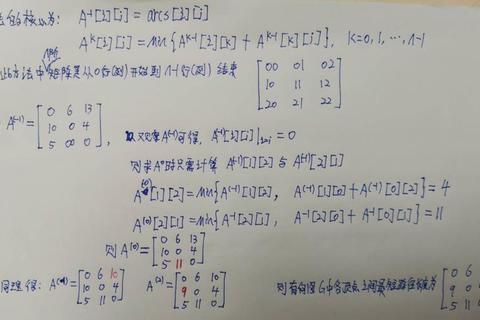 法的核心为: A⁻¹[i][j] = arcs[i][j]
Aᵏ[i][j] = Min{Aᵏ⁻¹[i][j], Aᵏ⁻¹[i][k] + Aᵏ⁻¹[k][j]}, k=0,1,⋯,n-1
n阶
此方法中矩阵是从0行(列)开始到n-1行(列)结束
[00 01 02
10 11 12
20 21 22]
A⁽⁻¹⁾ = [0 6 13
10 0 4
5 ∞ 0],
又观察A⁽⁻¹⁾可得, A⁻¹[i][j]|ᵢ₌ⱼ = 0
则求A⁰时只需计算 A⁽⁻¹⁾[1][2] 与 A⁽⁻¹⁾[2][1]
A⁽⁰⁾[1][2] = min{A⁽⁻¹⁾[1][2], A⁽⁻¹⁾[1][0] + A⁽⁻¹⁾[0][2]} = 4
A⁽⁰⁾[2][1] = min{A⁻¹[2][1], A⁻¹[2][0] + A⁻¹[0][1]} = 11
则 A⁽⁰⁾ = [0 6 13
10 0 4
5 11 0]
同理得: A⁽¹⁾ = [0 6 10
10 0 4
5 11 0]
A⁽²⁾ = [0 6 10
9 0 4
5 11 0]
则有向图G中各顶点之间最短路径长度为 [0 6
9 0
5 11